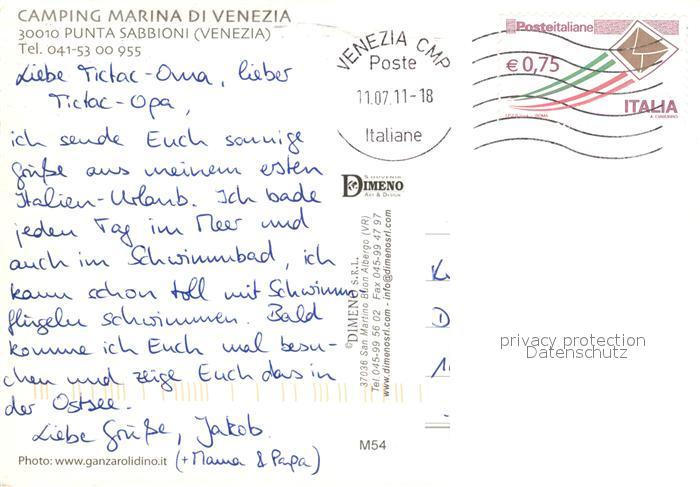 CAMPING MARINA DI VENEZIA
30010 PUNTA SABBIONI (VENEZIA)
Tel. 041-53 00 955
Liebe Tictac-Oma, lieber
Tictac-Opa,
ich sende Euch sonnige
Grüße aus meinem ersten
Italien-Urlaub. Ich bade
jeden Tag im Meer und
auch im Schwimmbad, ich
kann schon toll mit Schwimm
flügeln schwimmen. Bald
komme ich Euch mal besu-
chen und zeige Euch das in
der Ostsee.
Liebe Grüße, Jakob
(+Mama & Papa)
Photo: www.ganzarolidino.it
VENEZIA CMP
Poste
11.07.11-18
Italiane
Posteitaliane
€ 0,75
ITALIA
SOUVENIR
DIMENO
ART & DESIGN
©DIMENO S.R.L.
37036 San Martino Buon Albergo (VR)
Tel. 045-99 56 02 - Fax 045-99 47 97
www.dimenosrl.com - info@dimenosrl.com
M54
privacy protection
Datenschutz